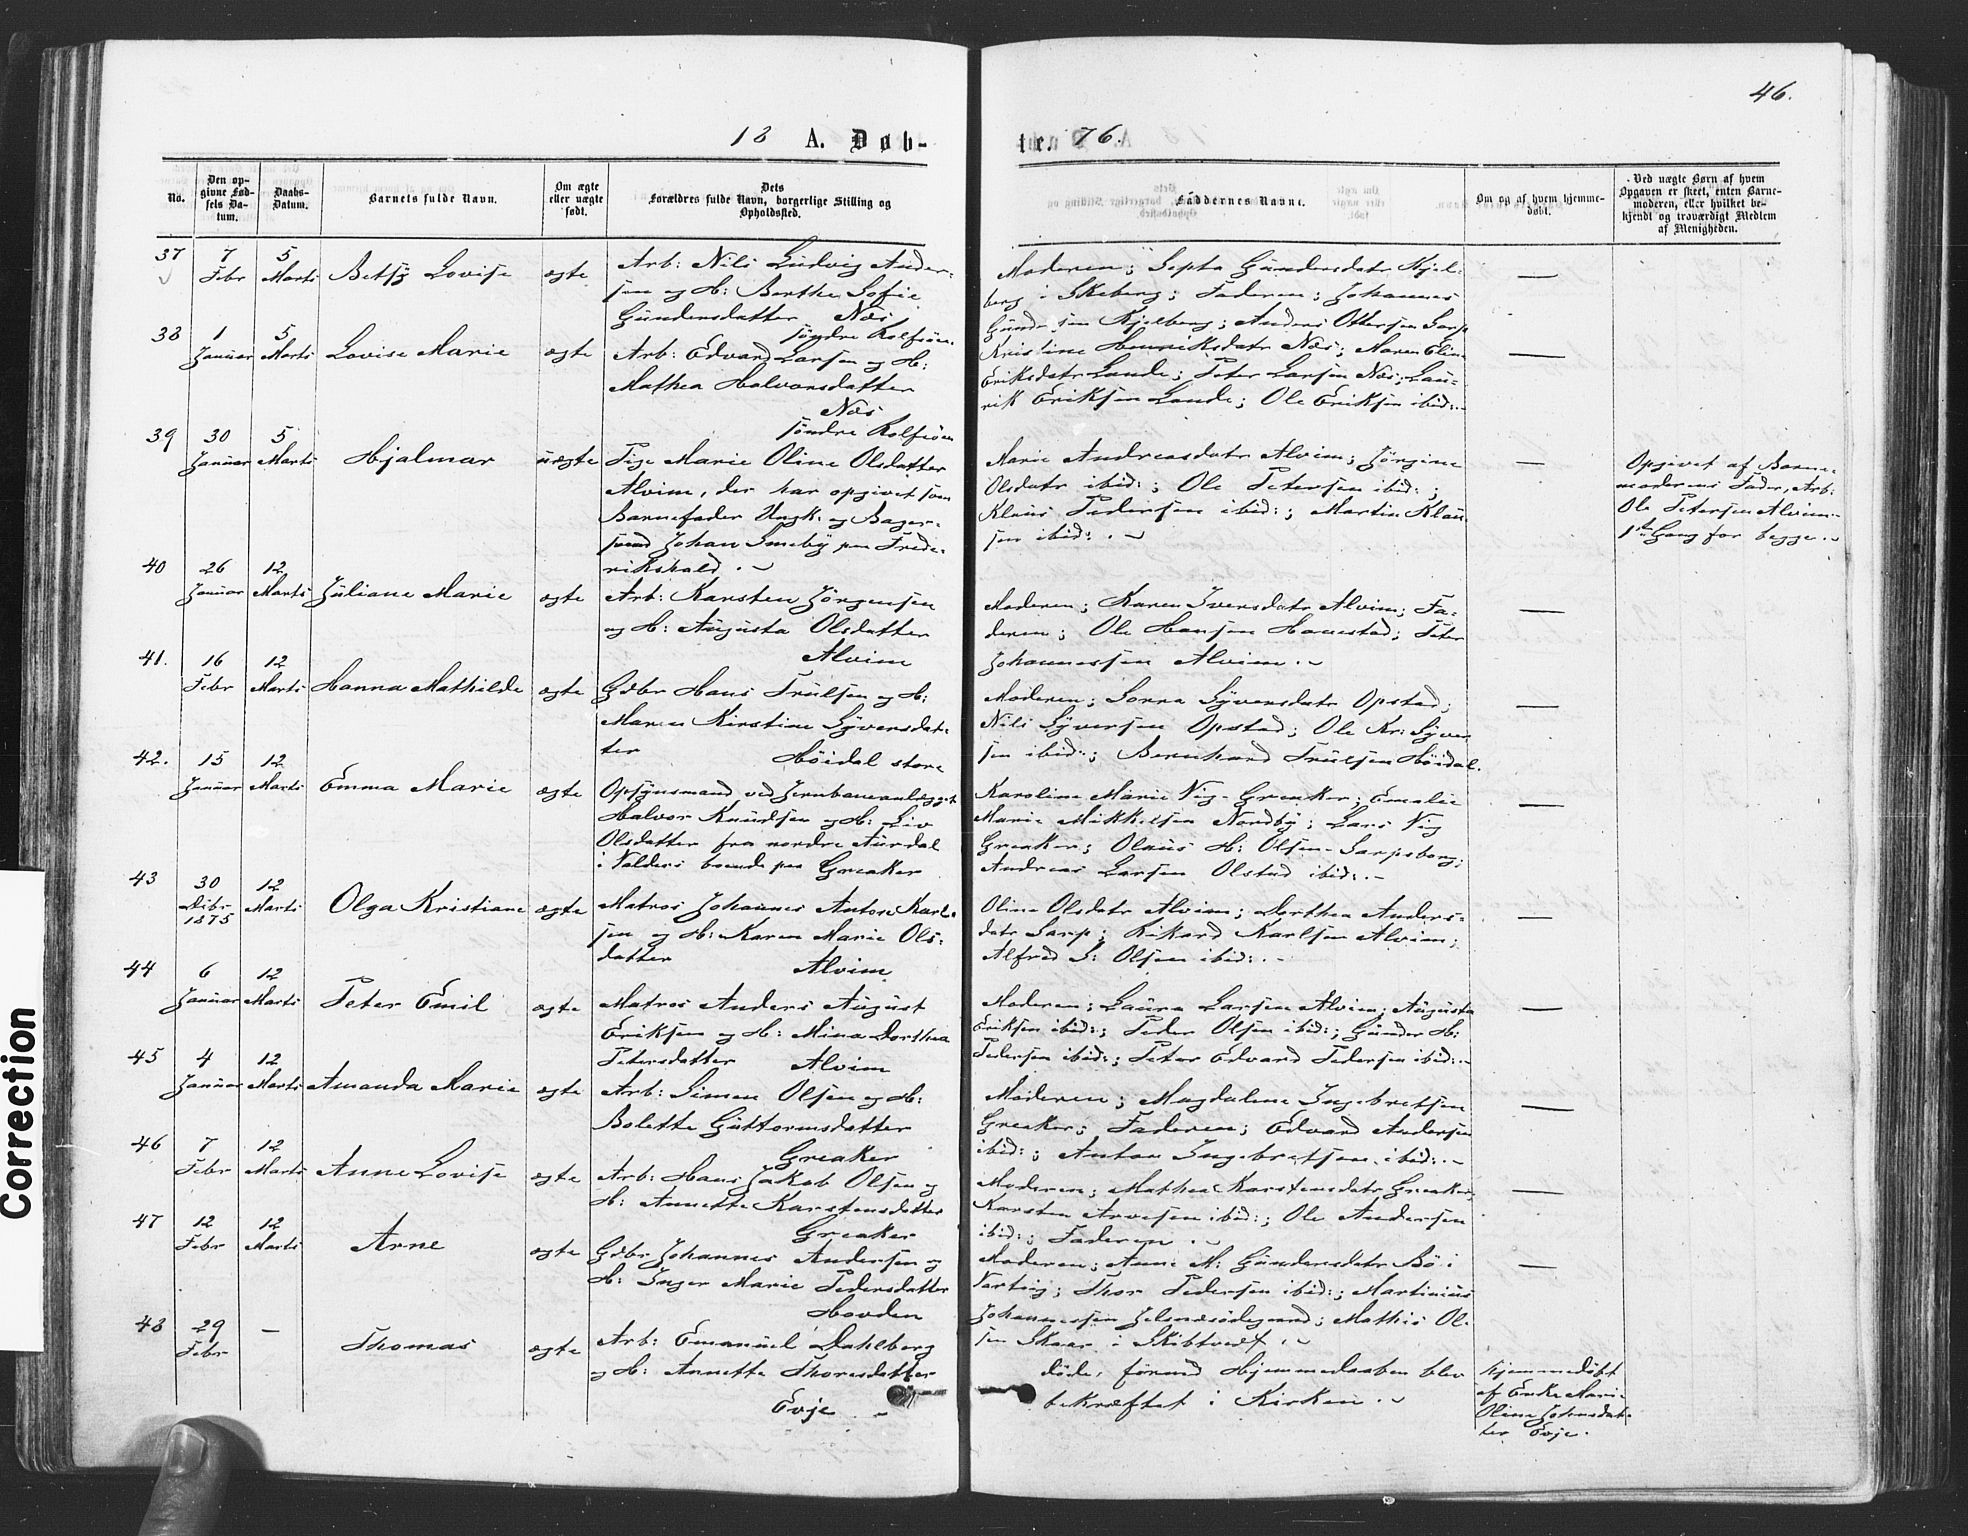 46.
18 A. Døb-
te. 76.
No.
Den op-
givne Fød-
sels Da-
tum.
Daabs-
Datum.
Barnets fulde Navn.
Om ægte
eller uægte
født.
Dets
Forældres fulde Navn, borgerlige Stilling og
Opholdssted.
Faddernes Navne.
Om og af hvem hjemme-
døbt.
Ved uægte Børn af hvem
Opgaven er skeet, enten Barne-
moderen, eller hvilket be-
kjendt og troværdigt Medlem
af Menigheden.
37
7
Febr
5
Marts
Betsy Lovise
ægte
Arb: Nils Ludvig Ander-
sen og H: Berthe Sofie
Gundersdatter Næs
søndre Rolfsøen
Moderen; Septa Gundersdatr Kjel-
berg i Skeberg; Faderen; Johannes
Gundersen Kjelberg; Anders Ottersen Sarp
—
38
1
Januar
5
Marts
Lovise Marie
ægte
Arb: Edvard Larsen og H:
Mathea Halvorsdatter
Næs
søndre Rolfsøen
Kristine Henriksdatr Næs; Maren Elin
Eriksdatr Lande; Peter Larsen Næs; Lau-
rik Eriksen Lande; Ole Eriksen ibid:.
—
39
30
Januar
5
Marts
Hjalmar
uægte
Pige Marie Oline Olsdatter
Alvim, der har opgivet som
Barnefader Ungk: og Bager-
svend Johan Smeby paa Frede-
rikshald.
Marie Andreasdatr Alvim; Jørgine
Olsdatr ibid:; Ole Petersen ibid:;
Klaus Pedersen ibid:; Martin Klau-
sen ibid:.
—
Opgivet af Barne-
moderens Fader, Arb:
Ole Petersen Alvim-
1ste Gang for begge.
40
26
Januar
12
Marts
Juliane Marie
ægte
Arb: Karsten Jørgensen
og H: Augusta Olsdatter
Alvim
Moderen; Karen Iversdatr Alvim; Fa-
deren; Ole Hansen Hannestad; Peter
Johannessen Alvim.
—
41.
16
Febr
12
Marts
Hanna Mathilde
ægte
Gdbr Hans Trulsen og H:
Maren Kirstine Syversdat-
ter Høidal store
Moderen; Sorra Syversdatr Opstad;
Nils Syversen Opstad; Ole Kr: Syver-
sen ibid:; Bernhard Trulsen Høidal.
—
42.
15
Januar
12
Marts
Emma Marie
ægte
Opsynsmand ved Jernbaneanlægget
Halvor Knudsen og H: Liv
Olsdatter fra nordre Aurdal
i Valders boende paa Greaker
Karoline Marie Vig- Greaker; Emalie
Marie Mikkelsen Nordby; Lars Vig
Greaker; Olaus H: Olsen- Sarpsborg;
Andreas Larsen Olstad ibid:.
—
43
30
Dcbr
1875
12
Marts
Olga Kristiane
ægte
Matros Johannes Anton Karl-
sen og H: Karen Marie Ols-
datter Alvim
Oline Olsdatr Alvim; Dorthea Anders-
datr Sarp; Rikard Karlsen Alvim;
Alfred S: Olsen ibid:.
—
44
6
Januar
12
Marts
Peter Emil
ægte
Matros Anders August
Eriksen og H: Mina Dorthea
Petersdatter Alvim
Moderen; Laura Larsen Alvim; Augusta
Eriksen ibid:; Peder Olsen ibid:; Gunder H:
Pedersen ibid:; Peter Edvard Pedersen ibid:.
—
45
4
Januar
12
Marts
Amanda Marie
ægte
Arb: Simen Olsen og H:
Bolette Guttormsdatter
Greaker
Moderen; Magdalene Ingebretsen
Greaker; Faderen; Edvard Andersen
ibid:; Anton Ingebretsen ibid:.
—
46
7
Febr
12
Marts
Anne Lovise
ægte
Arb: Hans Jakob Olsen og
H: Annette Karstensdatter
Greaker
Moderen; Mathea Karstensdatr Greaker;
Karsten Arvesen ibid:; Ole Andersen
ibid:; Faderen.
—
47
12
Febr
12
Marts
Arne
ægte
Gdbr Johannes Andersen og
H: Inger Marie Pedersdatter
Hovden
Moderen; Anne M: Gundersdatr Bø i
Varteig; Thor Pedersen ibid:; Martinius
Johannessen Jelsnæsødegaard; Mathis Ol-
sen Skaar i Skibtvedt.
—
48
29
Febr
—
Thomas
ægte
Arb: Emanuel Dahlberg
og H: Annette Thoresdatter
Evje
døde, førend Hjemmedaaben blev
bekræftet i Kirken.
hjemmedøbt
af Enke Marie
Oline Johnsdat-
ter Evje.
Correction